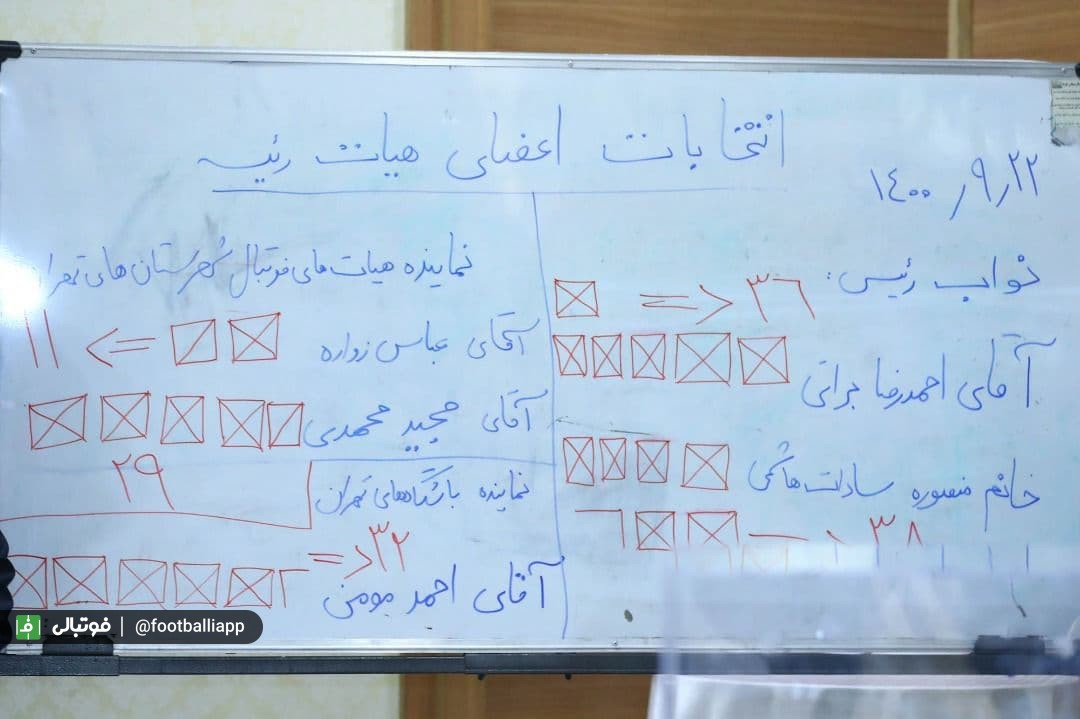 انتخابات اعضای هیات رئیسه
۱۴۰۰/۹/۲۲
نواب رئیس:
۳۶
آقای احمدرضا براتی
خانم منصوره سادات هاشمی
۳۸
نماینده هیات های فوتبال شهرستان های تهران
آقای عباس زواره
۱۱
آقای مجید محمدی
۲۹
نماینده باشگاههای تهران
۳۲
آقای احمد مومنی
فوتبالی | @footballiapp